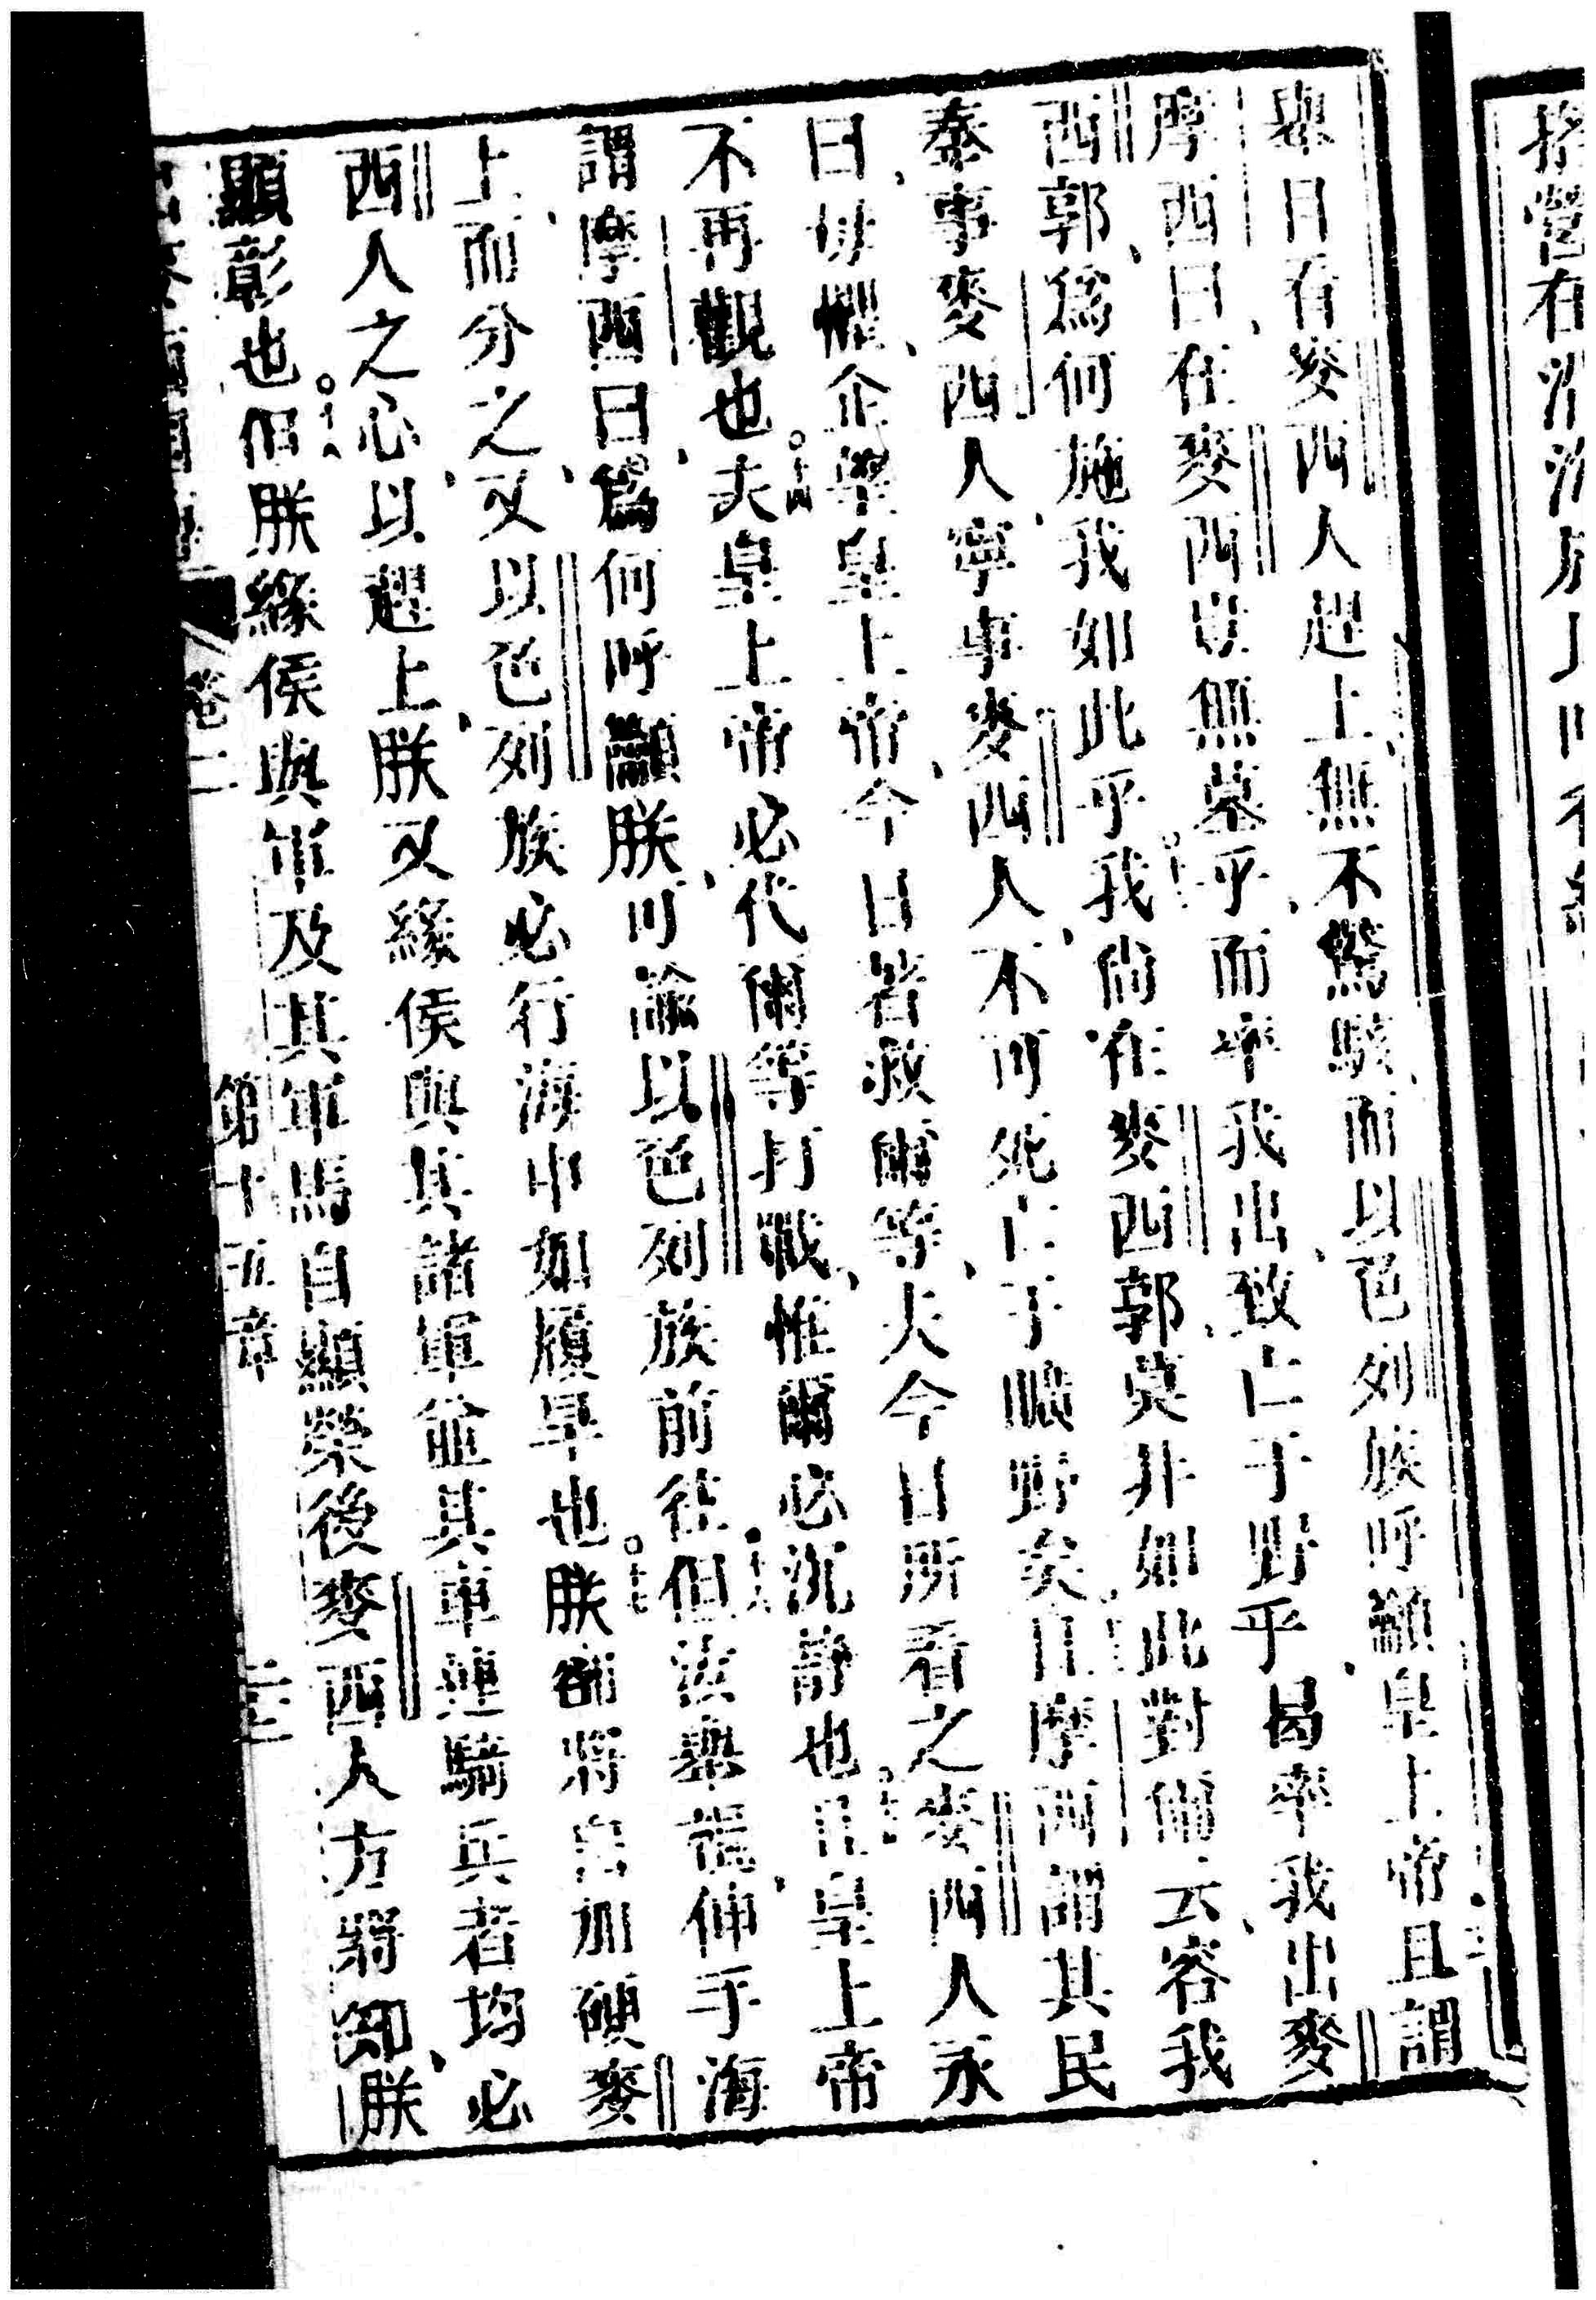 擧目看麥西人趕上無不驚駭而以色列族呼籲皇上帝且謂
摩西曰在麥西豈無墓乎而率我出致亡于野乎曷率我出麥
西郭爲何施我如此乎我尙在麥西郭莫非如此對爾云容我
奉事麥西人寧事麥西人不可死亡于曠野矣且摩西謂其民
曰毋懼企擧皇上帝今日著救爾等夫今日所看之麥西人永
不再觀也夫皇上帝必代爾等打戰惟爾必沉靜也且皇上帝
謂摩西曰爲何呼籲朕可諭以色列族前往但汝擧龍伸手海
上而分之又以色列族必行海中如履旱也朕卻將自加硬麥
西人之心以趕上朕又緣侯與其諸軍並其車連騎兵者均必
顯彰也但朕緣侯與軍及其軍馬自顯榮後麥西人方將知朕
卷二 第十五章